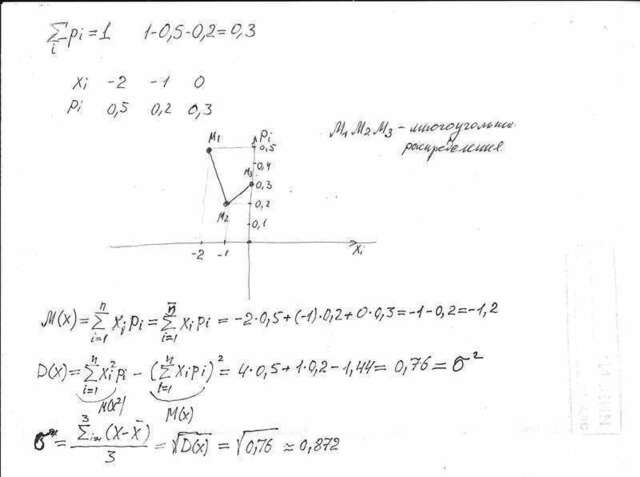 ∑i pi = 1   1-0,5-0,2=0,3
xi -2 -1 0
pi 0,5 0,2 0,3
M1 Pi
0,5
0,4
M3
0,3
M2 0,2
0,1
-2 -1 xi
M1 M2 M3 - многоугольник
распределения.
M(x) = ∑(i=1..n) xi pi = ∑(i=1..n) xi pi = -2·0,5+(-1)·0,2+0·0,3=-1-0,2=-1,2
D(x) = ∑(i=1..n) xi² pi - (∑(i=1..n) xi pi)² = 4·0,5+1·0,2-1,44=0,76=σ²
M(x²) M(x)
= √D(x) = √0,76 ≈ 0,872
3